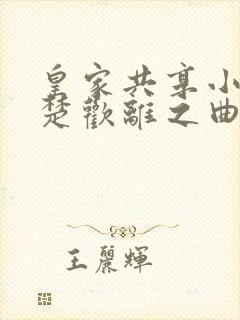 皇家共享小
楚歡離之曲
王麗輝